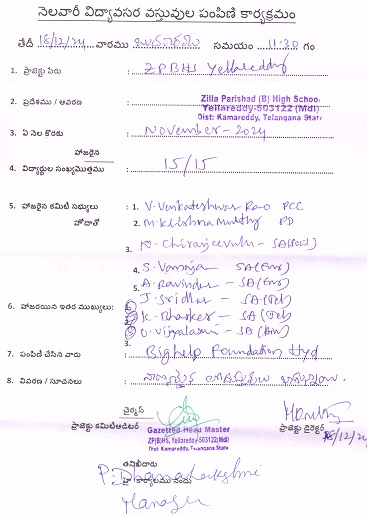 నెలవారీ విద్యావసర వస్తువుల పంపిణి కార్యక్రమం
తేదీ 18/12/24 వారము బుధవారము సమయం 11:30 గం
1. ప్రాజెక్టు పేరు : ZPBHS Yellareddy
2. ప్రదేశము / ఆవరణ : Zilla Parishad (B) High School
Yellareddy-503122 (Mdl)
Dist: Kamareddy, Telangana State
3. ఏ నెల కొరకు : November - 2024
హాజరైన
4. విద్యార్థుల సంఖ్యమొత్తము : 15/15
5. హాజరైన కమిటి సభ్యులు : 1. V. Venkateshwar Rao PCC
హోదాతో 2. M. Krishna Murthy PD
3. Chiranjeevulu - SA(Soc)
4. S. Vanaja SA(Eng)
5. A. Ravinder - SA(Eng)
6. హాజరయిన ఇతర ముఖ్యులు: J. Sridhar - SA(Tel)
K. Bhasker - SA(Tel)
Vijyalaxmi - SA
3.
7. పంపిణి చేసిన వారు : Bighelp Foundation Hyd
8. వివరణ / సూచనలు :
చైర్మన్
ప్రాజెక్టు కమిటీఆడిటర్
Gazetted Head Master
ZP(B)HS, Yellareddy-503122(Mdl)
Dist. Kamareddy, Telangana State
ప్రాజెక్టు డైరెక్టర్
18/12/24
తనిఖీదారు
P. Dhanalakshmi
Manager